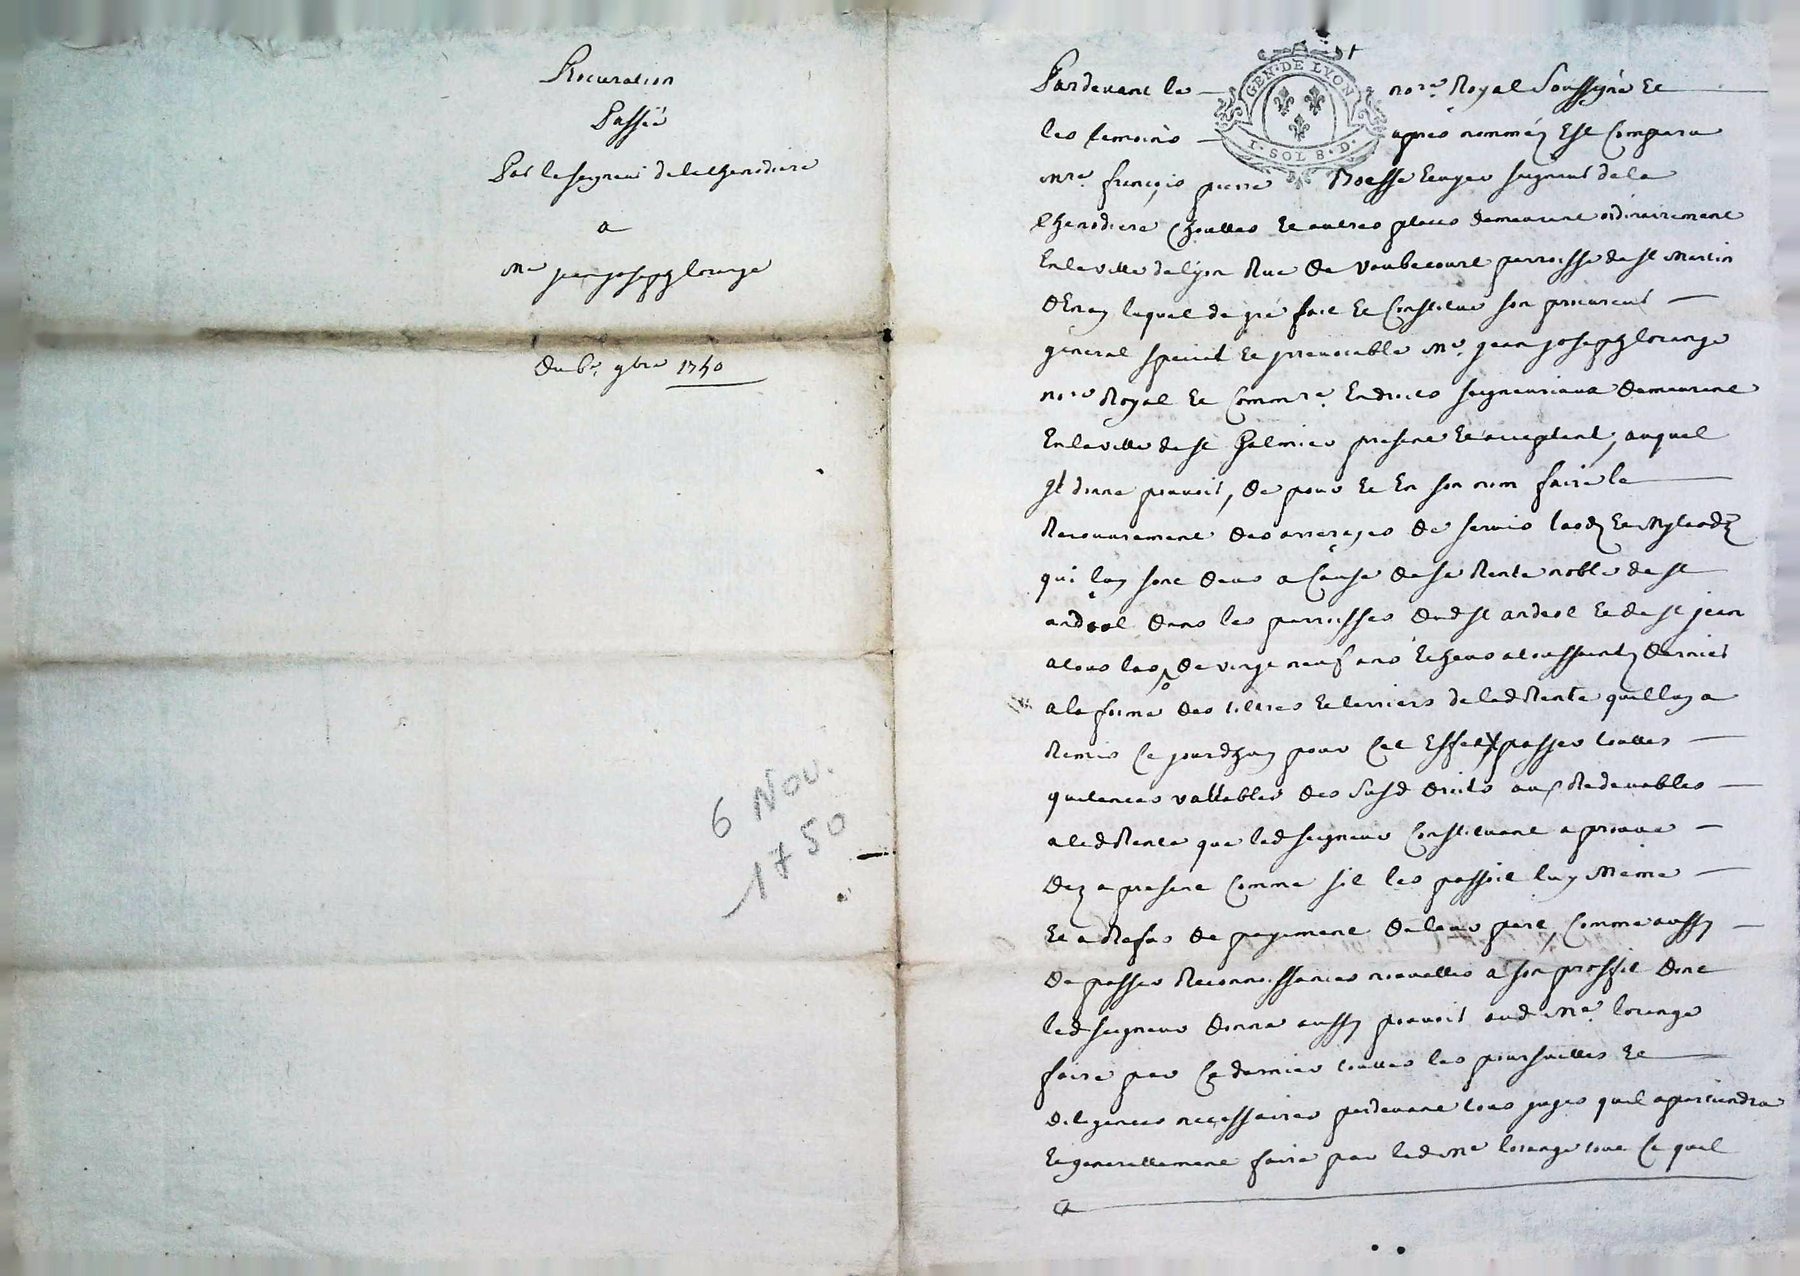 Procuration
Passée
Par le seigneur de la Thenodiere
a
Me jean joseph lorange
du 6e 9bre 1750
6 Nov.
1750
GEN. DE LYON
1. SOL 8. D.
Pardevant le nore Royal Soussigné Et
les temoins apres nommés Est Comparu
Mre françois pierre Ecuyer seigneur de la
Thenodiere Et autres places demeurant ordinairement
En la ville de lyon Rue de Vaubecourt parroisse de st Martin
dEnay lequel de gré fait Et Constitue son procureur
general special Et irrevocable Me jean joseph lorange
nore Royal Et Commre En droits seigneuriaux demeurant
En la ville de st Galmier present Et acceptant, auquel
Il donne pouvoir, de pour Et En son nom faire le
Recouvrement des arrerages de servis laods Et mylaods
qui luy sont deus a Cause de sa Rente noble de st
andeol dans les parroisses dud st andeol Et de st jean
a tous las de vingt neuf ans Echeus a toussaints dernier
a la forme des tiltres Et terriers de lad Rente quil luy a
Remis Ce jourdhuy pour Cet Effet passer touttes
quitances vallables des susd droits aux Redevables
a lad Rente que led seigneur Constituant aprouve
dez a present Comme sil les passoit luy Meme
Et a Refus de payement de leur part, Comme aussy
de passer Reconnoissances nouvelles a son proffit dont
led seigneur donne aussy pouvoir aud Me lorange
faire par Ce dernier touttes les poursuittes Et
diligences necessaires pardevant tous juges quil apartiendra
Et generallement faire par led Me lorange tout Ce quil
a